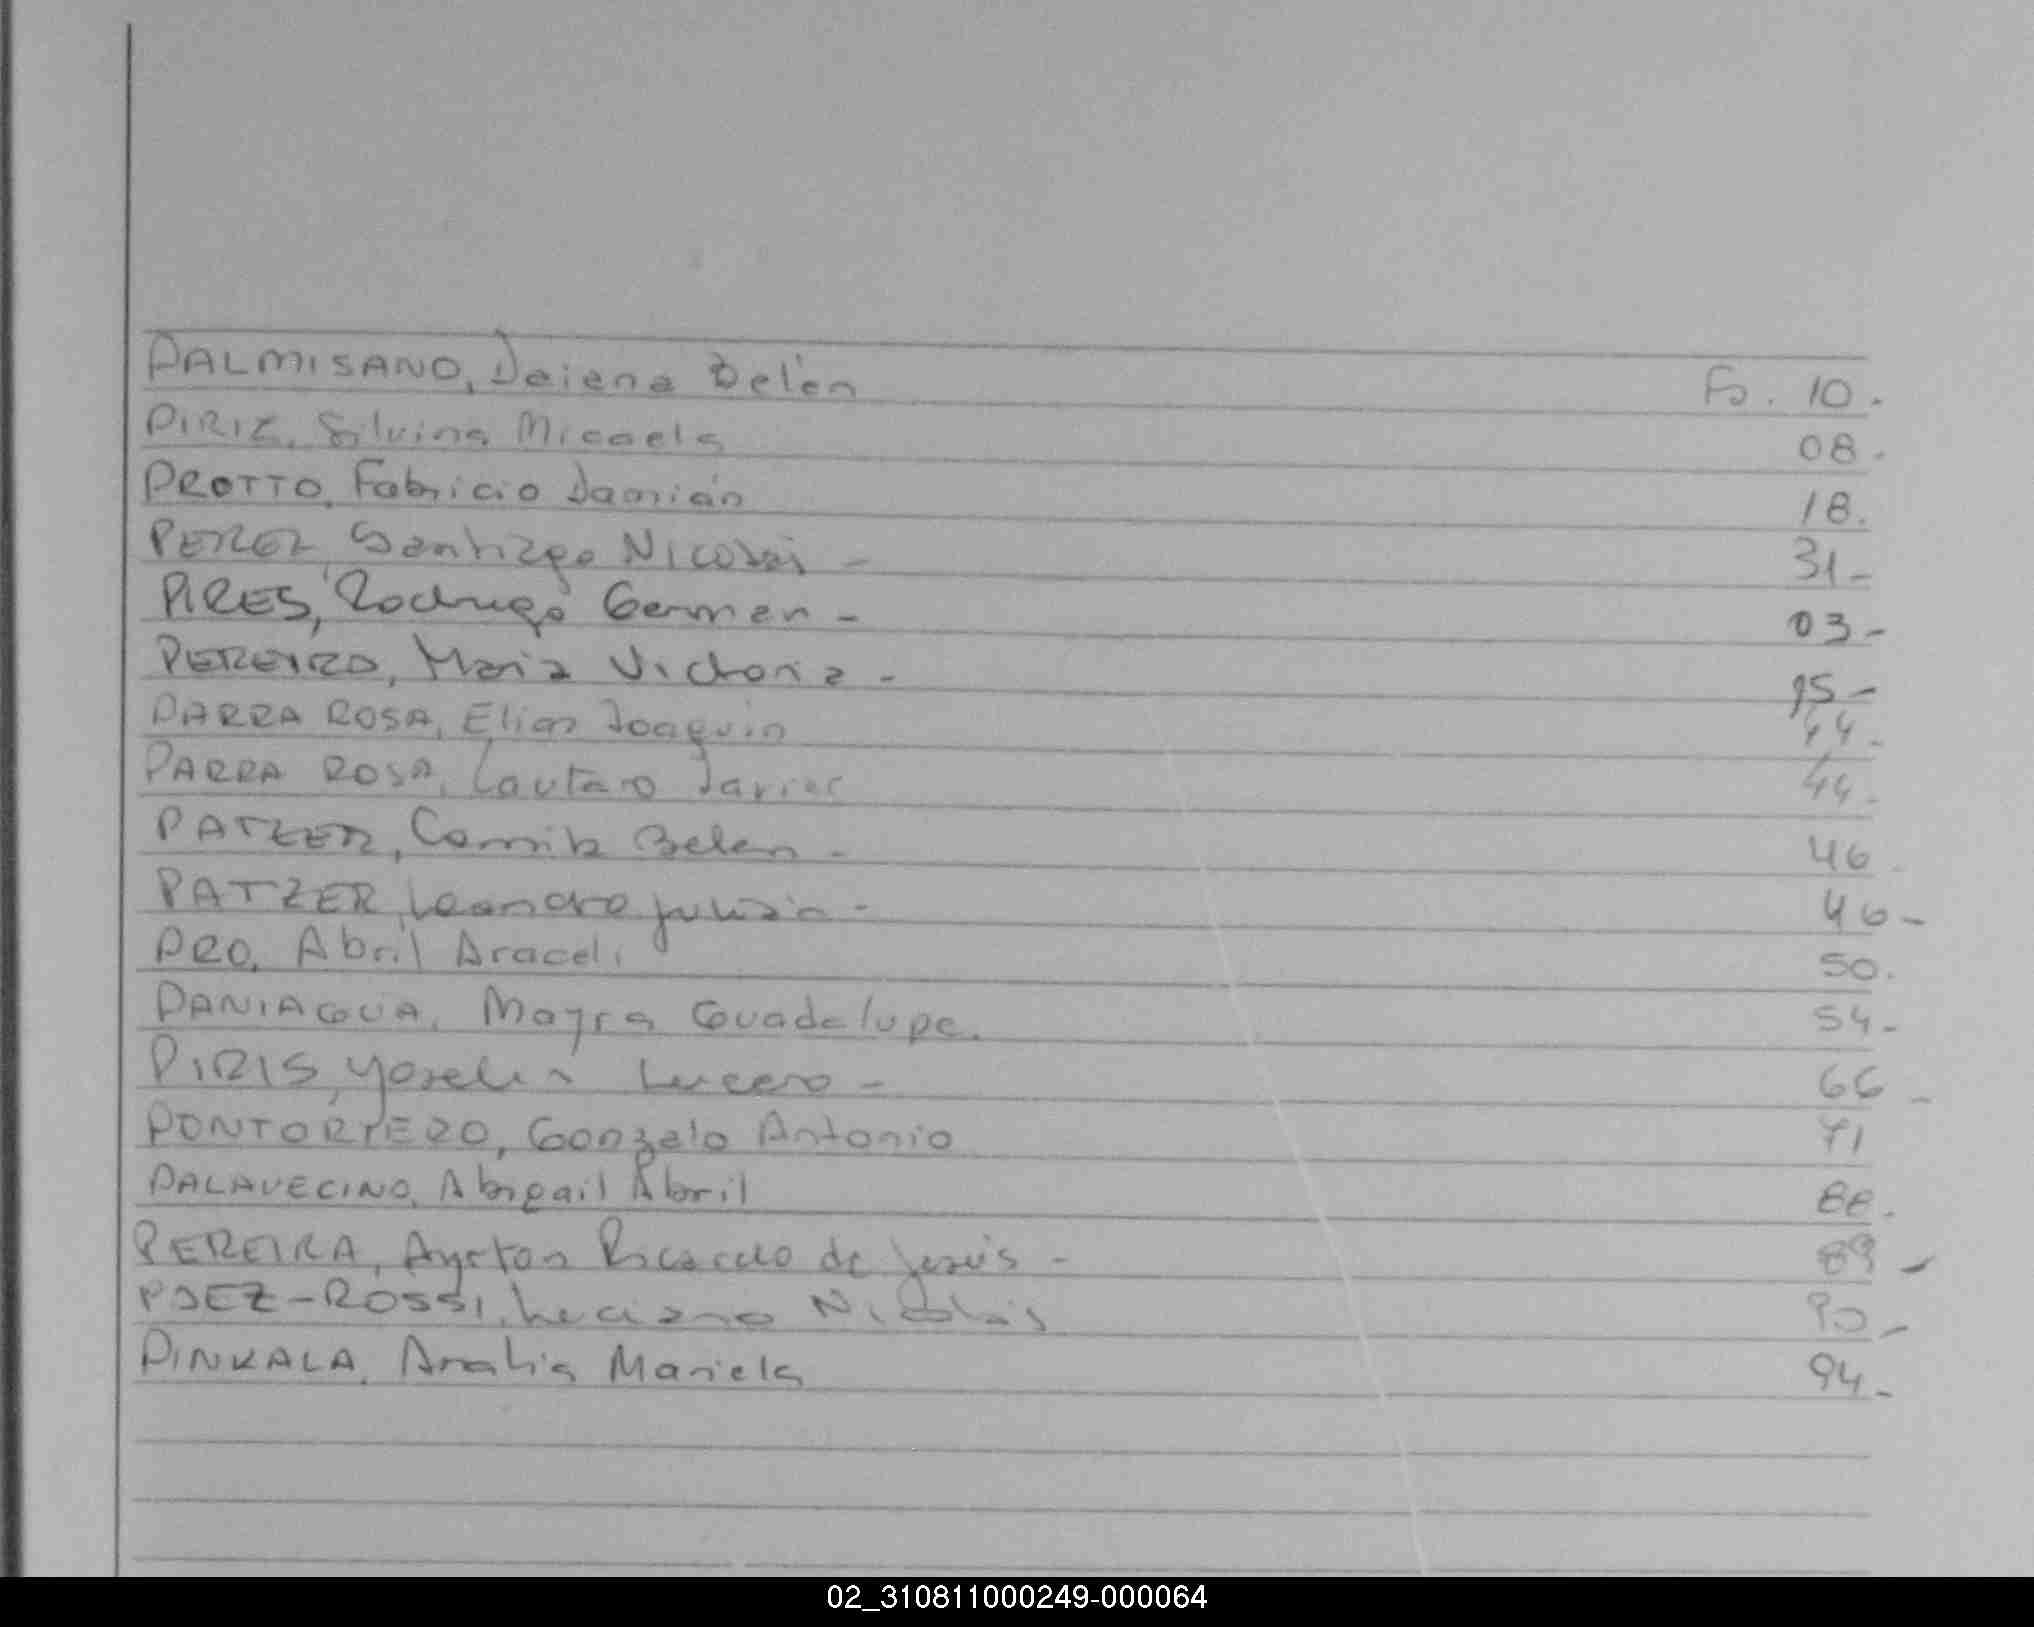 PALMISANO, Daiana Belén Fo. 10.
PIRIZ, Silvina Micaela 08.
PROTTO, Fabricio Damián 18.
PEREZ, Santiago Nicolás - 31-
PIRES, Rodrigo German - 03-
PEREIRO, Maria Victoria - 15-
PARRA ROSA, Elias Joaquin 44-
PARRA ROSA, Lautaro Javier 44-
PATZER, Camila Belen - 46
PATZER, Leandro Julián - 46-
PRO, Abril Araceli 50.
PANIAGUA, Mayra Guadalupe. 54-
PIRIS, Yoselin Lucero - 66-
PONTORIERO, Gonzalo Antonio 71
PALAVECINO, Abigail Abril 88.
PEREIRA, Ayrton Ricardo de Jesús - 89-
PAEZ-ROSSI, Luciano Nicolás 90-
PINKALA, Analia Mariela 94-
02_310811000249-000064